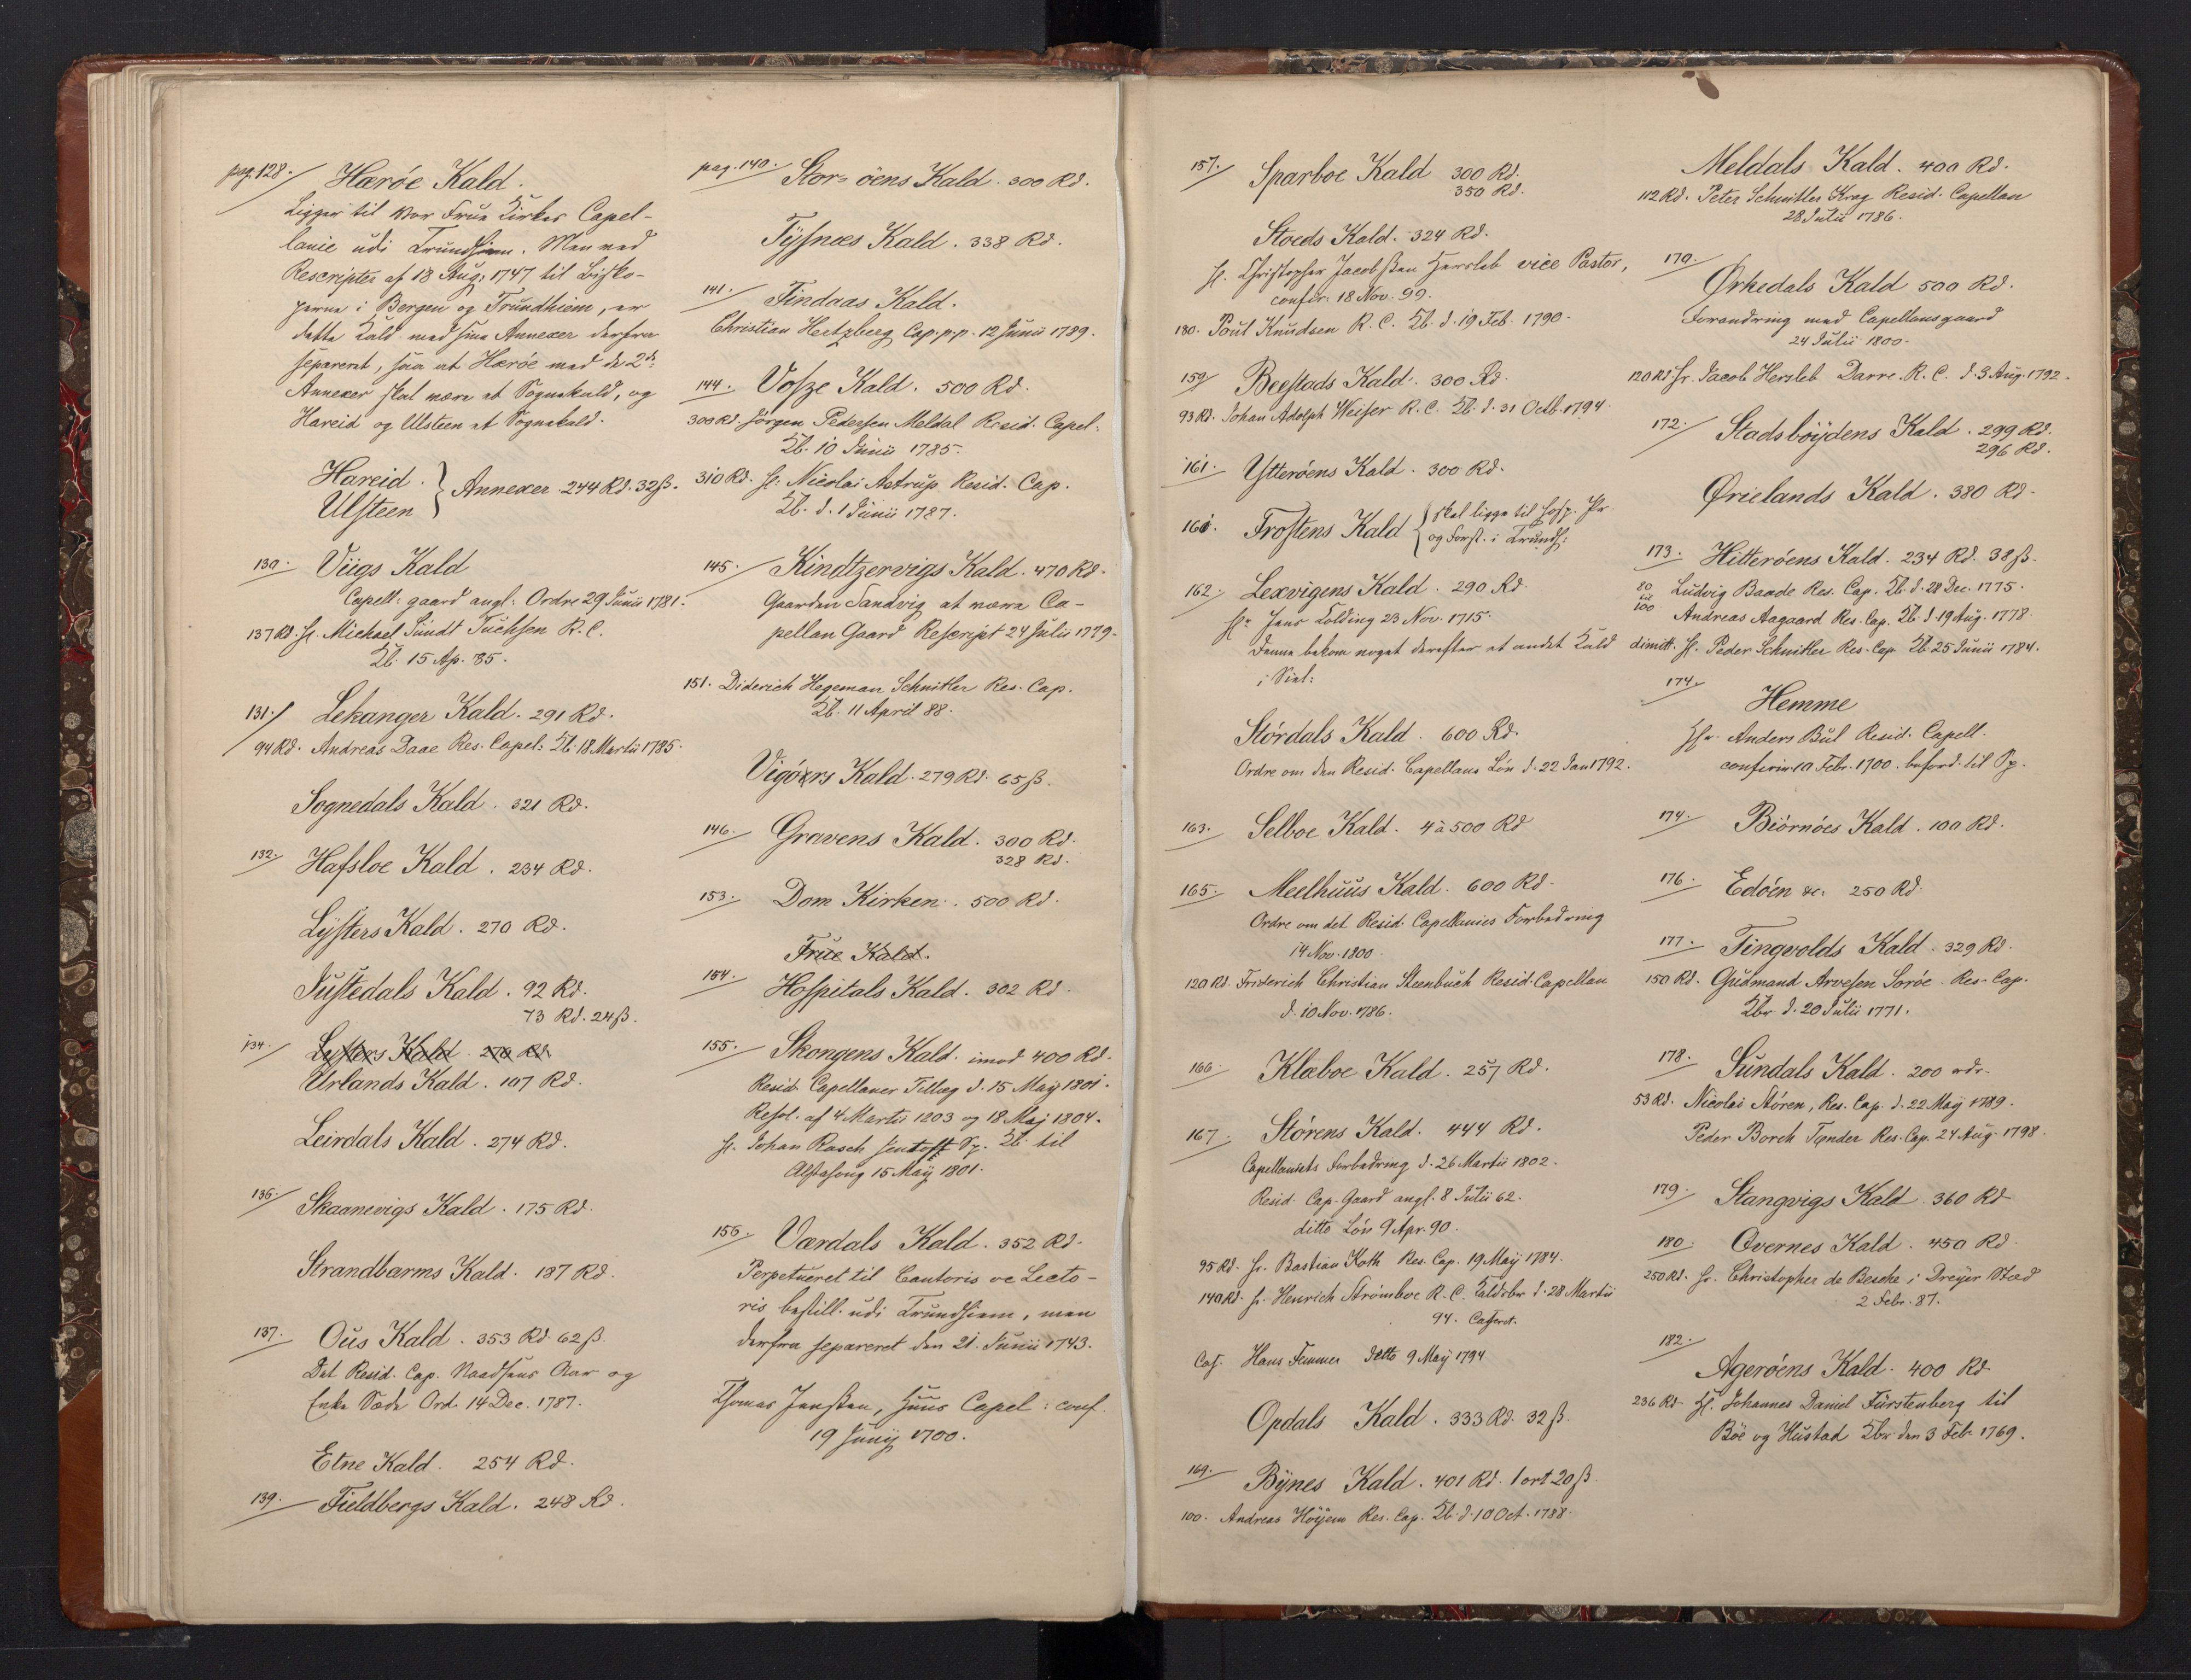 pag. 128. Herøe Kald.
Ligger til Vor Frue Kirkes Capel-
lanie udi Trundhiem. Men ved
Rescripter af 18 Aug: 1747 til Bisko-
perne i Bergen og Trundhiem, er
dette Kald med sine Annexer derfra
separeret, saa at Herøe med de 2de
Annexer skal være et Sognekald, og
Hareid og Ulsteen et Sognekald.
Hareid } Annexer. 244 Rd. 32 ß.
Ulsteen
130. Viigs Kald
Capell: gaard angl: Ordre 29 Junii 1781.
137 Rd. H. Michael Sundt Tuchsen R. C.
Kb. 15 Ap. 85.
131. Lekanger Kald. 291 Rd.
94 Rd. Andreas Daae Res. Capel: Kb. 18 Martii 1785.
Sognedals Kald. 321 Rd.
132. Hafsloe Kald. 234 Rd.
Lysters Kald. 270 Rd.
Justedals Kald. 92 Rd.
73 Rd. 24 ß.
134. Lysters Kald. 270 Rd.
Urlands Kald. 107 Rd.
Leirdals Kald. 274 Rd.
136. Skaanevigs Kald. 175 Rd.
Strandbarms Kald. 187 Rd.
137. Ous Kald. 353 Rd. 62 ß.
Det Resid. Cap. Naadsens Aar og
Enke Sæde Ord. 14 Dec. 1787.
Etne Kald. 254 Rd.
139. Fieldbergs Kald. 248 Rd.
pag. 140. Stor- öens Kald. 300 Rd.
Tysnæs Kald. 338 Rd.
141. Findaas Kald.
Christian Hertzberg Cap. p. p. 12 Junii 1789.
144. Vosze Kald. 500 Rd.
300 Rd. Jörgen Pedersen Meldal Resid. Capel.
Kb. 10 Junii 1785.
310 Rd. H. Nicolai Astrup Resid. Cap.
Kb. d. 1 Junii 1787.
145. Kindtzervigs Kald. 470 Rd.
Gaarden Sandvig at være Ca-
pellan Gaard Rescript 24 Julii 1779.
151. Diderich Hegeman Schnitler Res. Cap.
Kb. 11 April 88.
Vigöers Kald. 279 Rd. 65 ß.
146. Gravens Kald. 300 Rd.
328 Rd.
153. Dom Kirken. 500 Rd.
Frue Kald.
154. Hospitals Kald. 302 Rd.
155. Skongens Kald. imod 400 Rd.
Resid. Capellaner Tillæg d. 15 Maij 1801.
Resol. af 4 Martii 1803 og 18 Maj 1804.
H. Johan Rasch Sp. Kb. til
15 Maij 1801.
156. Værdals Kald. 352 Rd.
Perpetueret til Cantoris oc Lecto-
ris bestill. udi Trundhiem, men
derfra separeret den 21. Junii 1743.
Thomas Jenssen, Huus Capel: conf.
19 Junij 1700.
157. Sparboe Kald 300 Rd.
350 Rd.
Stoeds Kald. 324 Rd.
H. Christopher Jacobssen Hersleb vice Pastor,
confir: 18 Nov. 99.
180. Poul Knudsen R. C. Kb. d. 19 Feb. 1790.
159. Beestads Kald. 300 Rd.
93 Rd. Johan Adolph Weiser R. C. Kb. d. 31 Octb. 1794.
161. Ytteröens Kald. 300 Rd.
161. Frostens Kald { skal ligge til Hosp. Pr.
og Forst. i Trundh:
162. Lexvigens Kald. 290 Rd
Hr Jens Colding 23 Nov. 1715.
Denne bekom noget derefter et andet Kald
i Siel:
Stördals Kald. 600 Rd.
Ordre om den Resid. Capellans Lön d. 22 Jan 1792.
163. Selboe Kald. 4 à 500 Rd
165. Meelhuus Kald. 600 Rd.
Ordre om det Resid. Capellanies Forbedring
14 Nov. 1800.
120 Rd. Friderich Christian Steenbuch Resid. Capellan
d. 10 Nov. 1786.
166. Klæboe Kald. 257 Rd.
167. Störens Kald. 444 Rd.
Capellaniets Forbedring d. 26 Martii 1802.
Resid. Cap. Gaard angl. 8 Julii 62.
ditto Lön 9 Apr. 90.
95 Rd. Hr. Bastian Koth Res. Cap. 19 Maij 1784.
140 Rd. H. Henrich Strömboe R. C. Kaldsbr d. 28 Martii
94. Casseret.
Cas. Hans Femmer ditto 9 Maij 1794
Opdals Kald. 333 Rd. 32 ß.
169. Bynes Kald. 401 Rd. 1 ort 20 ß.
100. Andreas Höyem Res. Cap. Kb. d. 10 Oct. 1788.
Meldals Kald. 400 Rd.
112 Rd. Peter Schnitler Krag Resid. Capellan
28 Julii 1786.
170. Ørkedals Kald 500 Rd.
Forandring med Capellansgaard
24 Julii 1800.
120 Rd Hr. Jacob Hersleb Darre. R. C. d. 3 Aug. 1792.
172. Stadsböydens Kald. 299 Rd.
296 Rd.
Ørielands Kald. 380 Rd.
173. Hitteröens Kald. 234 Rd. 38 ß.
80 til 100 Ludvig Baade Res. Cap. Kb. d. 28 Dec. 1775.
Andreas Aagaard Res. Cap. Kb. d. 19 Aug. 1778.
dimitt. H. Peder Schnitler Res. Cap. Kb. 25 Junii 1784.
174. Hemme
Hr. Anders Bul Resid. Capell.
confirm. 10 Febr. 1700. beford. til Sp.
174. Biörnöes Kald. 100 Rd.
176. Edöen &c. 250 Rd.
177. Tingvolds Kald. 329 Rd.
150 Rd. Gudmund Arvesen Soröe Res. Cap.
Kbr. d. 20 Julii 1771.
178. Sundals Kald. 200 rdr.
53 Rd. Nicolai Stören, Res. Cap. d. 22 Maij 1789.
Peder Borch Tynder Res. Cap. 24 Aug. 1798.
179. Stangvigs Kald. 360 Rd
180. Qvernes Kald. 450 Rd.
250 Rd. Hr. Christopher de Besche i Dreyer Sted
2 Febr. 87.
182. Ageröens Kald. 400 Rd.
236 Rd. H. Johannes Daniel Fürstenberg til
Böe og Hustad Kbr. den 3 Feb. 1769.